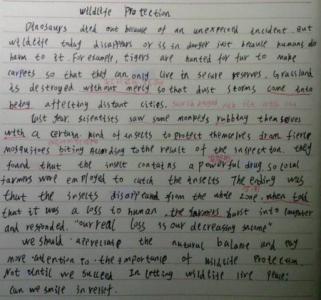 wildlife Protection
Dinosaurs died out because of an unexpected incident. But
wildlife today disappears or is in danger just because humans do
harm to it. For example, tigers are hunted for fur to make
carpets so that they can only live in secure reserves. Grassland
is destroyed without mercy so that dust storms come into
being affecting distant cities.
Last year, scientists saw some monkeys rubbing themselves
with a certain kind of insects to protect themselves from fierce
mosquitoes biting. According to the result of the inspection, they
found that the insect contains a powerful drug so local
farmers were employed to catch the insects. The ending was
that the insects disappeared from the whole zone. when told
that it was a loss to human, the farmers burst into laughter
and responded. "our real loss is our decreasing income"
we should appreciate the natural balance and pay
more attention to the importance of wildlife protection.
Not until we succeed in letting wildlife live peace
can we smile in relief.